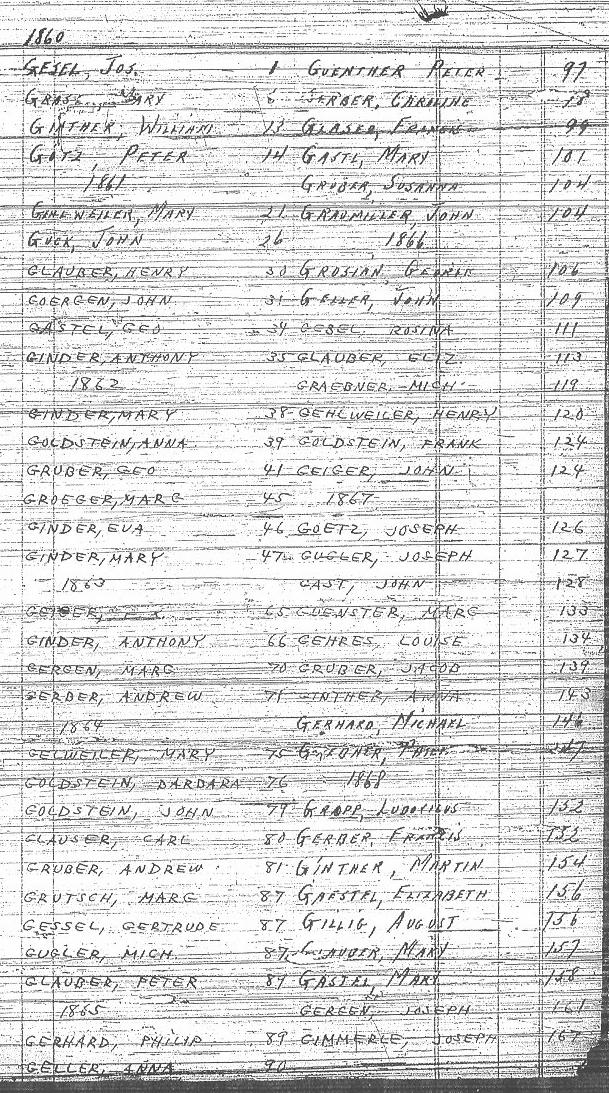 1860
GESEL, JOS. 1
MARY 6
GINTHER, WILLIAM 13
GOTZ, PETER 14
1861
GEHLWEILER, MARY 21
GUCK, JOHN 26
GLAUBER, HENRY 30
GOERGEN, JOHN 31
GASTEL, GEO 34
GINDER, ANTHONY 35
1862
GINDER, MARY 38
GOLDSTEIN, ANNA 39
GRUBER, GEO 41
GROEGER, MARG 45
GINDER, EVA 46
GINDER, MARY 47
1863
GEIGER, 65
GINDER, ANTHONY 66
GERGEN, MARG 70
GERBER, ANDREW 71
1864
GELWEILER, MARY 75
GOLDSTEIN, BARBARA 76
GOLDSTEIN, JOHN 79
GLAUSER, CARL 80
GRUBER, ANDREW 81
GRUTSCH, MARG 87
GESSEL, GERTRUDE 87
GUGLER, MICH 87
GLAUBER, PETER 87
1865
GERHARD, PHILIP 89
GELLER, ANNA 90
GUENTHER PETER 97
GERBER, CAROLINE
GLASER, FRANCIS 99
GASTL, MARY 101
GRUBER, SUSANNA 104
GRAUMILLER, JOHN 104
1866
GROSIAN, GEORGE 106
GELLER, JOHN 109
GESEL ROSINA 111
GLAUBER, ELIZ. 113
GRAEBNER, MICH. 119
GEHLWEILER, HENRY 120
GOLDSTEIN, FRANK 124
GEIGER, JOHN 124
1867
GOETZ, JOSEPH 126
GUGLER, JOSEPH 127
GAST, JOHN 128
GUENSTER, MARG 133
GEHRES, LOUISE 134
GRUBER, JACOB 139
GINTHER, ANNA 143
GERHARD, MICHAEL 146
147
1868
GROPP, LUDOVICUS 152
GERBER, FRANCIS 152
GINTHER, MARTIN 154
GAESTEL, ELIZABETH 156
GILLIG, AUGUST 156
GLAUBER, MARY 157
GASTEL, MARY 158
GERGEN, JOSEPH 161
GIMMERLE, JOSEPH 167